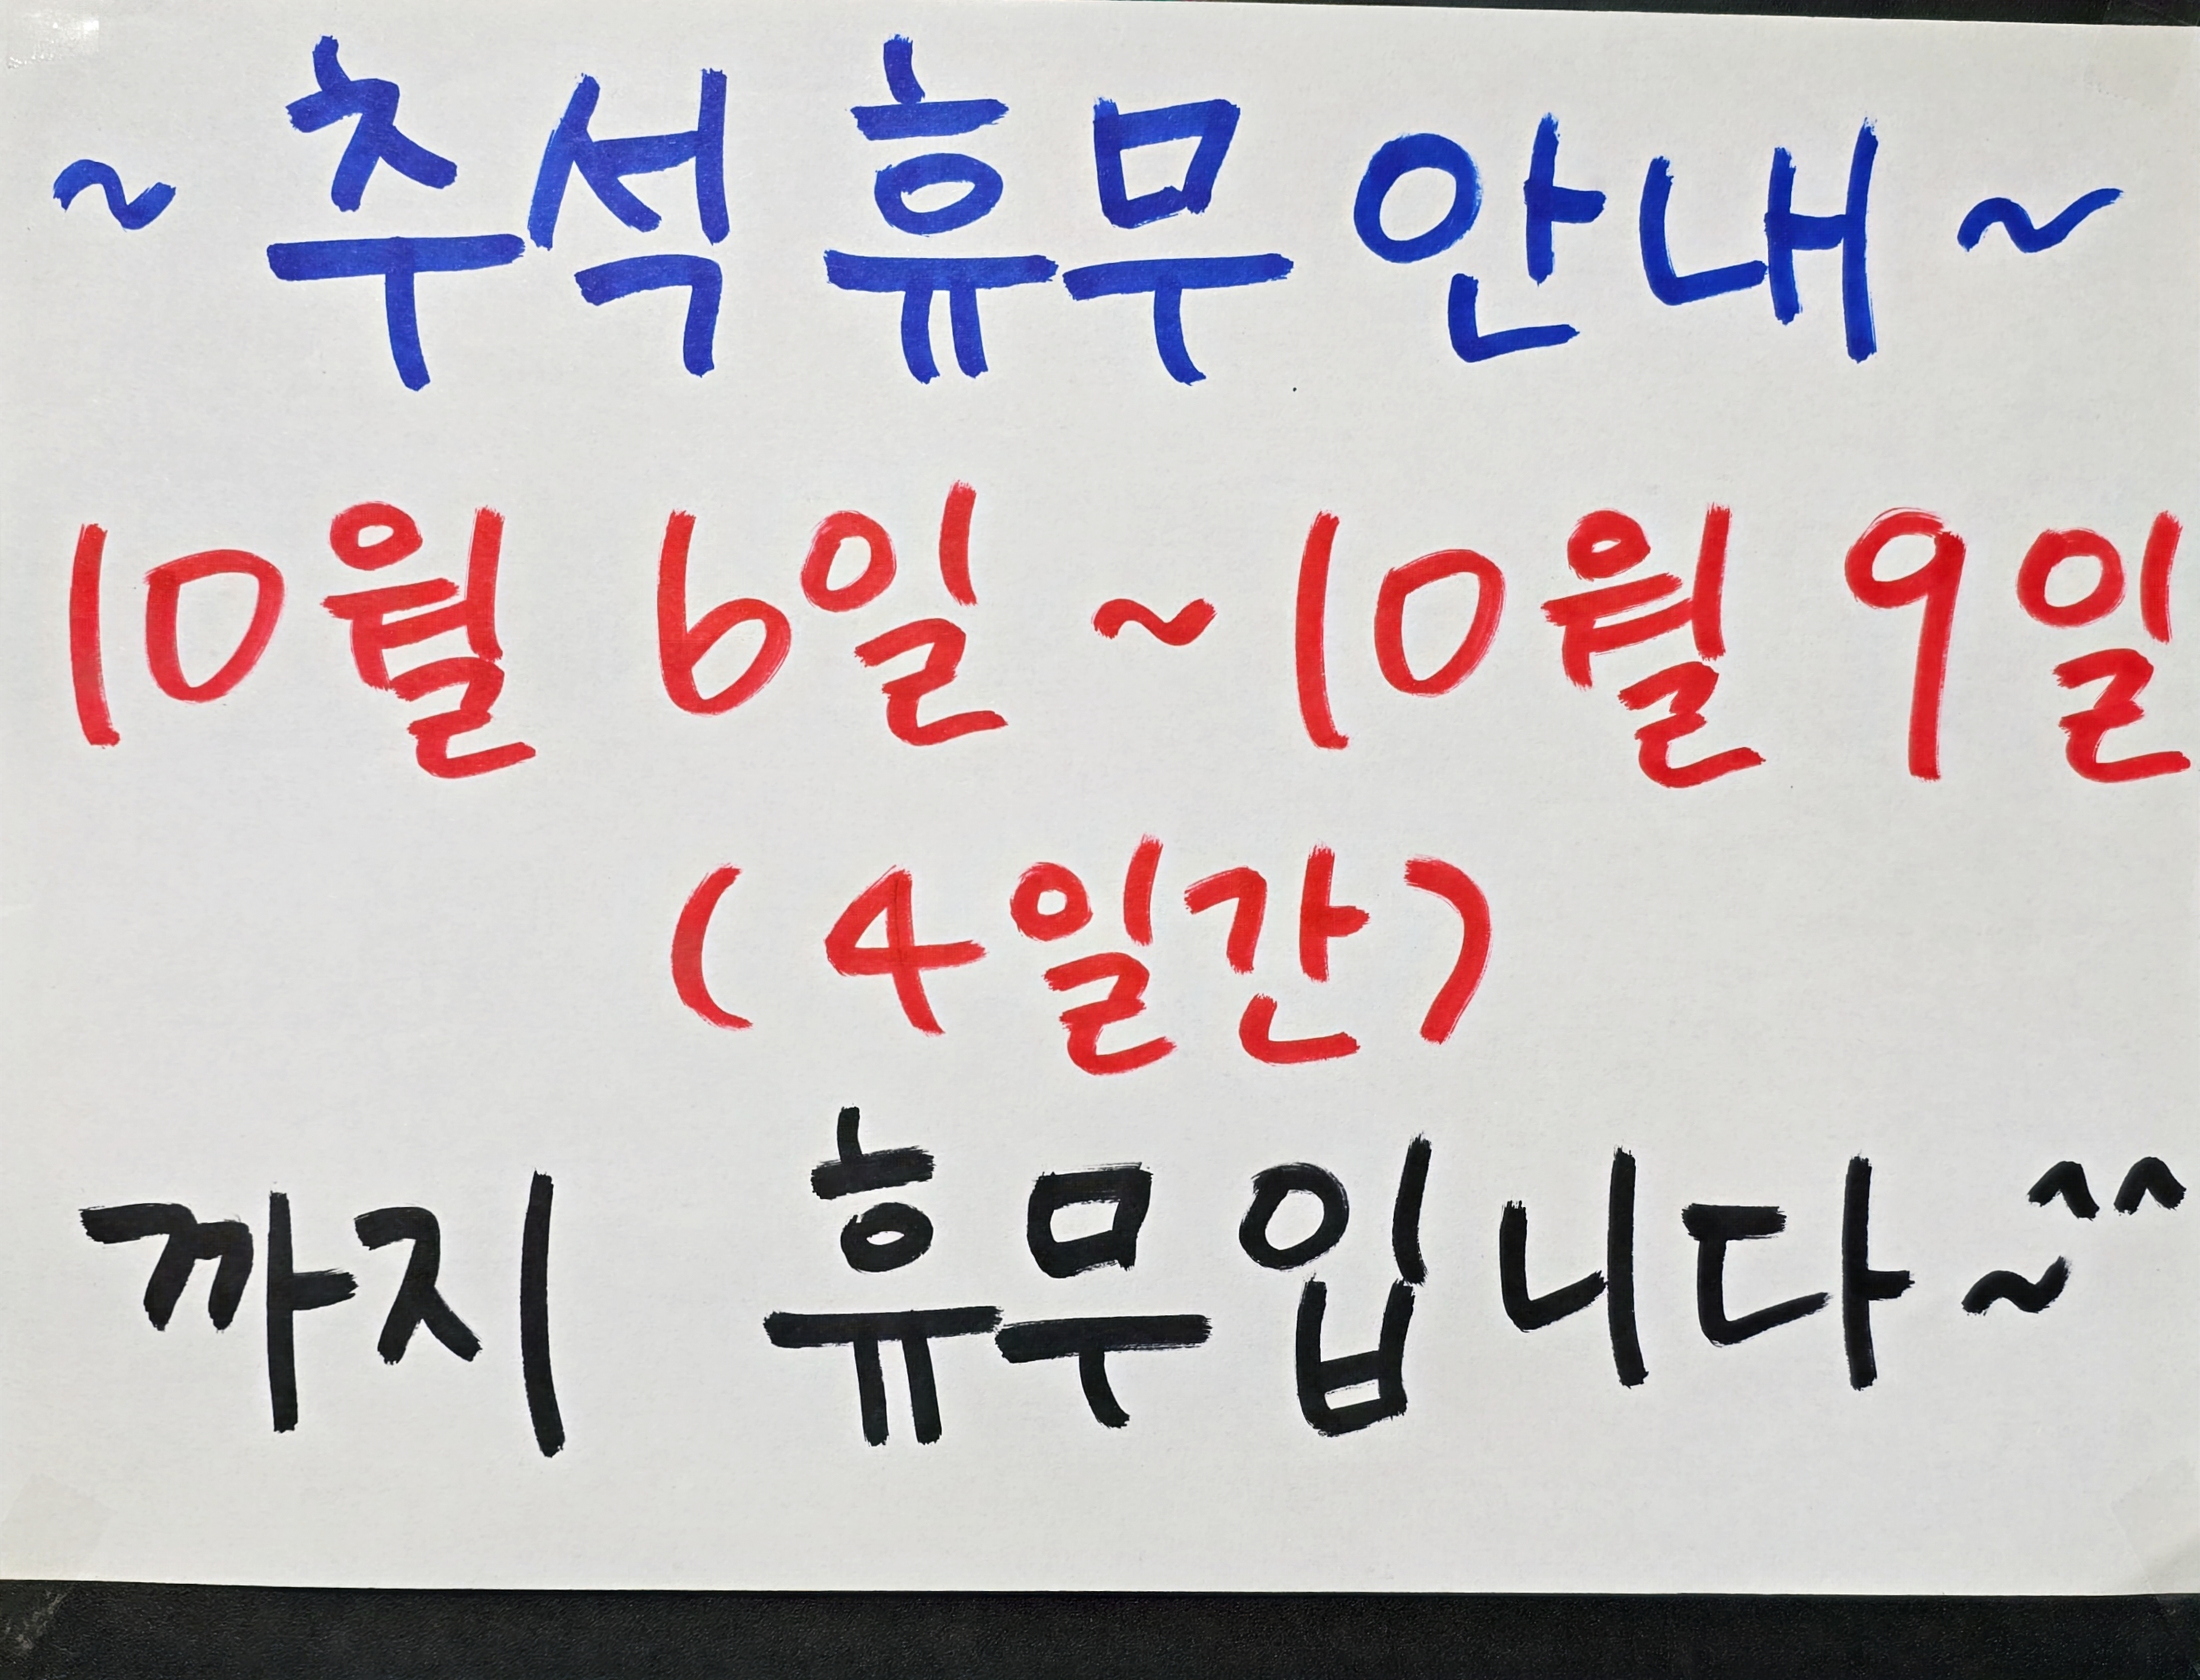 ~ 추석 휴무 안내 ~
10월 6일 ~ 10월 9일
(4일간)
까지 휴무입니다~^^